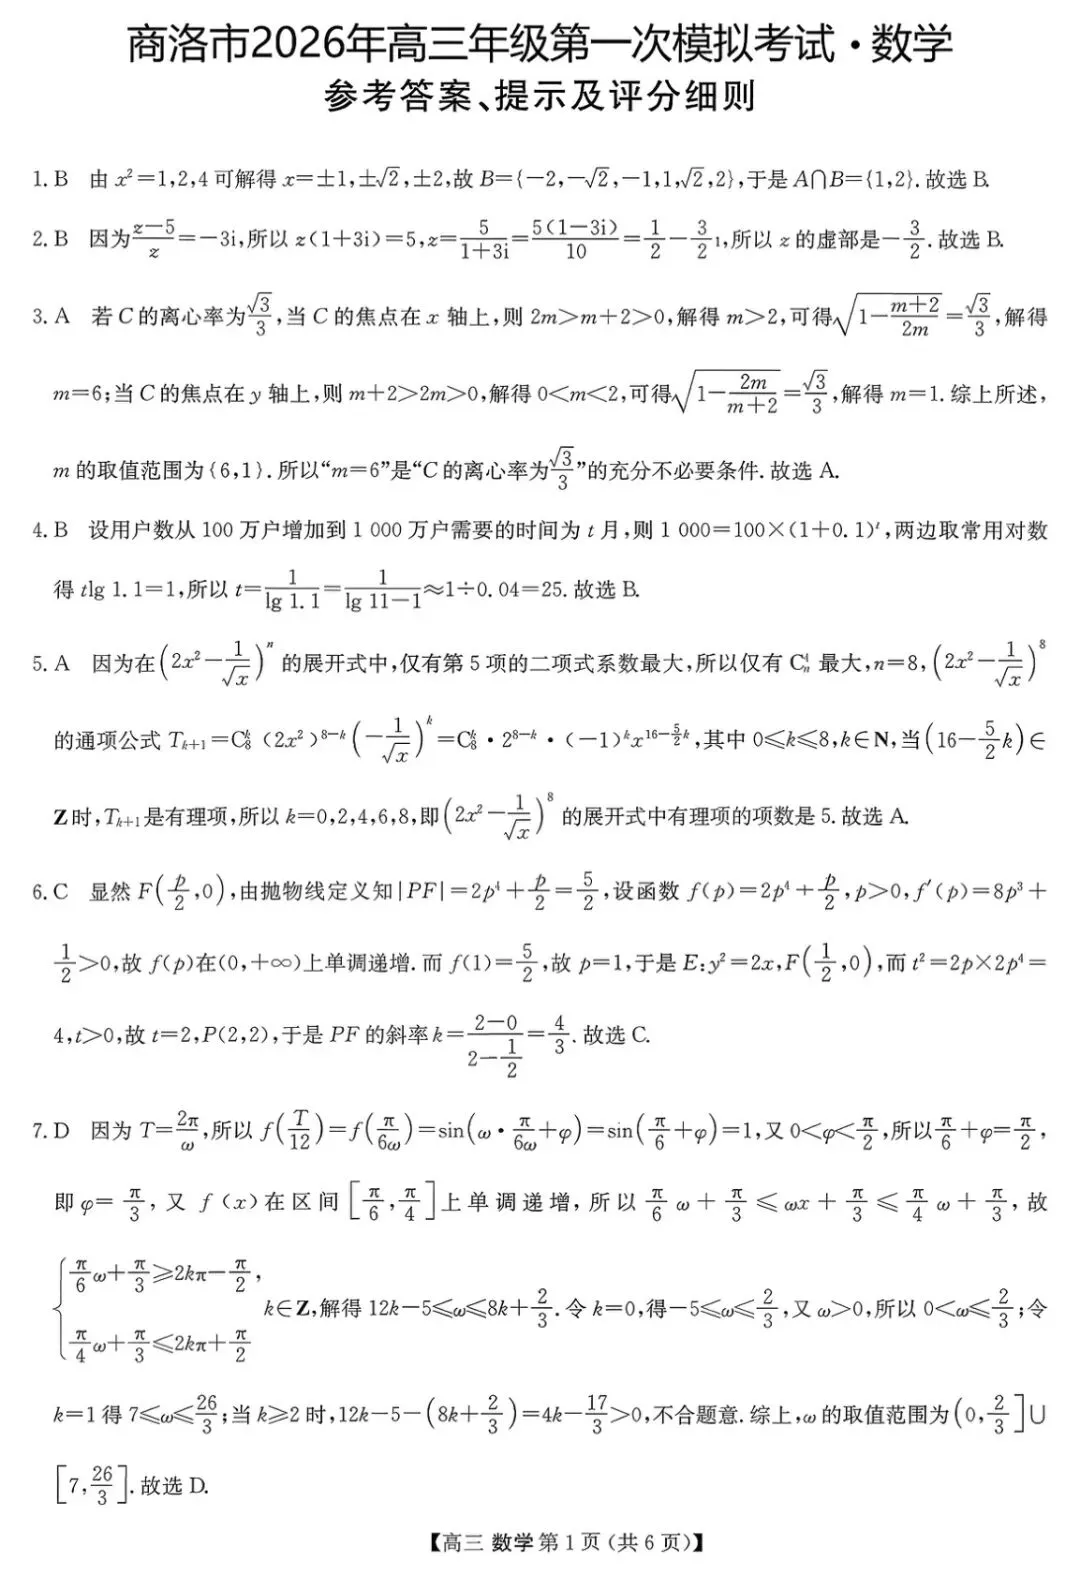 商洛市2026年高三年级第一次模拟考试·数学
参考答案、提示及评分细则
1. B 由 x²=1,2,4 可解得 x=±1,±√2,±2,故 B={-2,-√2,-1,1,√2,2},于是 A∩B={1,2}. 故选 B.
2. B 因为 (z-5)/z=-3i,所以 z(1+3i)=5,z=5/(1+3i)=5(1-3i)/10=1/2-3/2 i,所以 z 的虚部是-3/2. 故选 B.
3. A 若 C 的离心率为√3/3,当 C 的焦点在 x 轴上,则 2m>m+2>0,解得 m>2,可得√(1-(m+2)/(2m))=√3/3,解得
m=6;当 C 的焦点在 y 轴上,则 m+2>2m>0,解得 0<m<2,可得√(1-2m/(m+2))=√3/3,解得 m=1. 综上所述,
m 的取值范围为{6,1}. 所以“m=6”是“C 的离心率为√3/3”的充分不必要条件. 故选 A.
4. B 设用户数从 100 万户增加到 1 000 万户需要的时间为 t 月,则 1 000=100×(1+0.1)ᵗ,两边取常用对数
得 tlg 1.1=1,所以 t=1/(lg 1.1)=1/(lg 11-1)≈1÷0.04=25. 故选 B.
5. A 因为在(2x²-1/√x)ⁿ 的展开式中,仅有第 5 项的二项式系数最大,所以仅有 C_n^4 最大,n=8,(2x²-1/√x)⁸
的通项公式 T_{k+1}=C_8^k(2x²)^{8-k}(-1/√x)^k=C_8^k·2^{8-k}·(-1)^k x^{16-5/2 k},其中 0≤k≤8,k∈N,当(16-5/2 k)∈
Z时,T_{k+1}是有理项,所以 k=0,2,4,6,8,即(2x²-1/√x)⁸ 的展开式中有理项的项数是 5. 故选 A.
6. C 显然 F(p/2,0),由抛物线定义知|PF|=2p⁴+p/2=5/2,设函数 f(p)=2p⁴+p/2,p>0,f′(p)=8p³+
1/2>0,故 f(p)在(0,+∞)上单调递增. 而 f(1)=5/2,故 p=1,于是 E:y²=2x,F(1/2,0),而 t²=2p×2p⁴=
4,t>0,故 t=2,P(2,2),于是 PF 的斜率 k=(2-0)/(2-1/2)=4/3. 故选 C.
7. D 因为 T=2π/ω,所以 f(T/12)=f(π/(6ω))=sin(ω·π/(6ω)+φ)=sin(π/6+φ)=1,又 0<φ<π/2,所以π/6+φ=π/2,
即 φ=π/3,又 f(x)在区间[π/6,π/4]上单调递增,所以 π/6 ω+π/3≤ωx+π/3≤π/4 ω+π/3,故
{π/6 ω+π/3≥2kπ-π/2,
π/4 ω+π/3≤2kπ+π/2 k∈Z,解得 12k-5≤ω≤8k+2/3. 令 k=0,得-5≤ω≤2/3,又 ω>0,所以 0<ω≤2/3;令
k=1 得 7≤ω≤26/3;当 k≥2 时,12k-5-(8k+2/3)=4k-17/3>0,不合题意. 综上,ω 的取值范围为(0,2/3]∪
[7,26/3]. 故选 D.
【高三 数学 第 1 页 (共 6 页)】